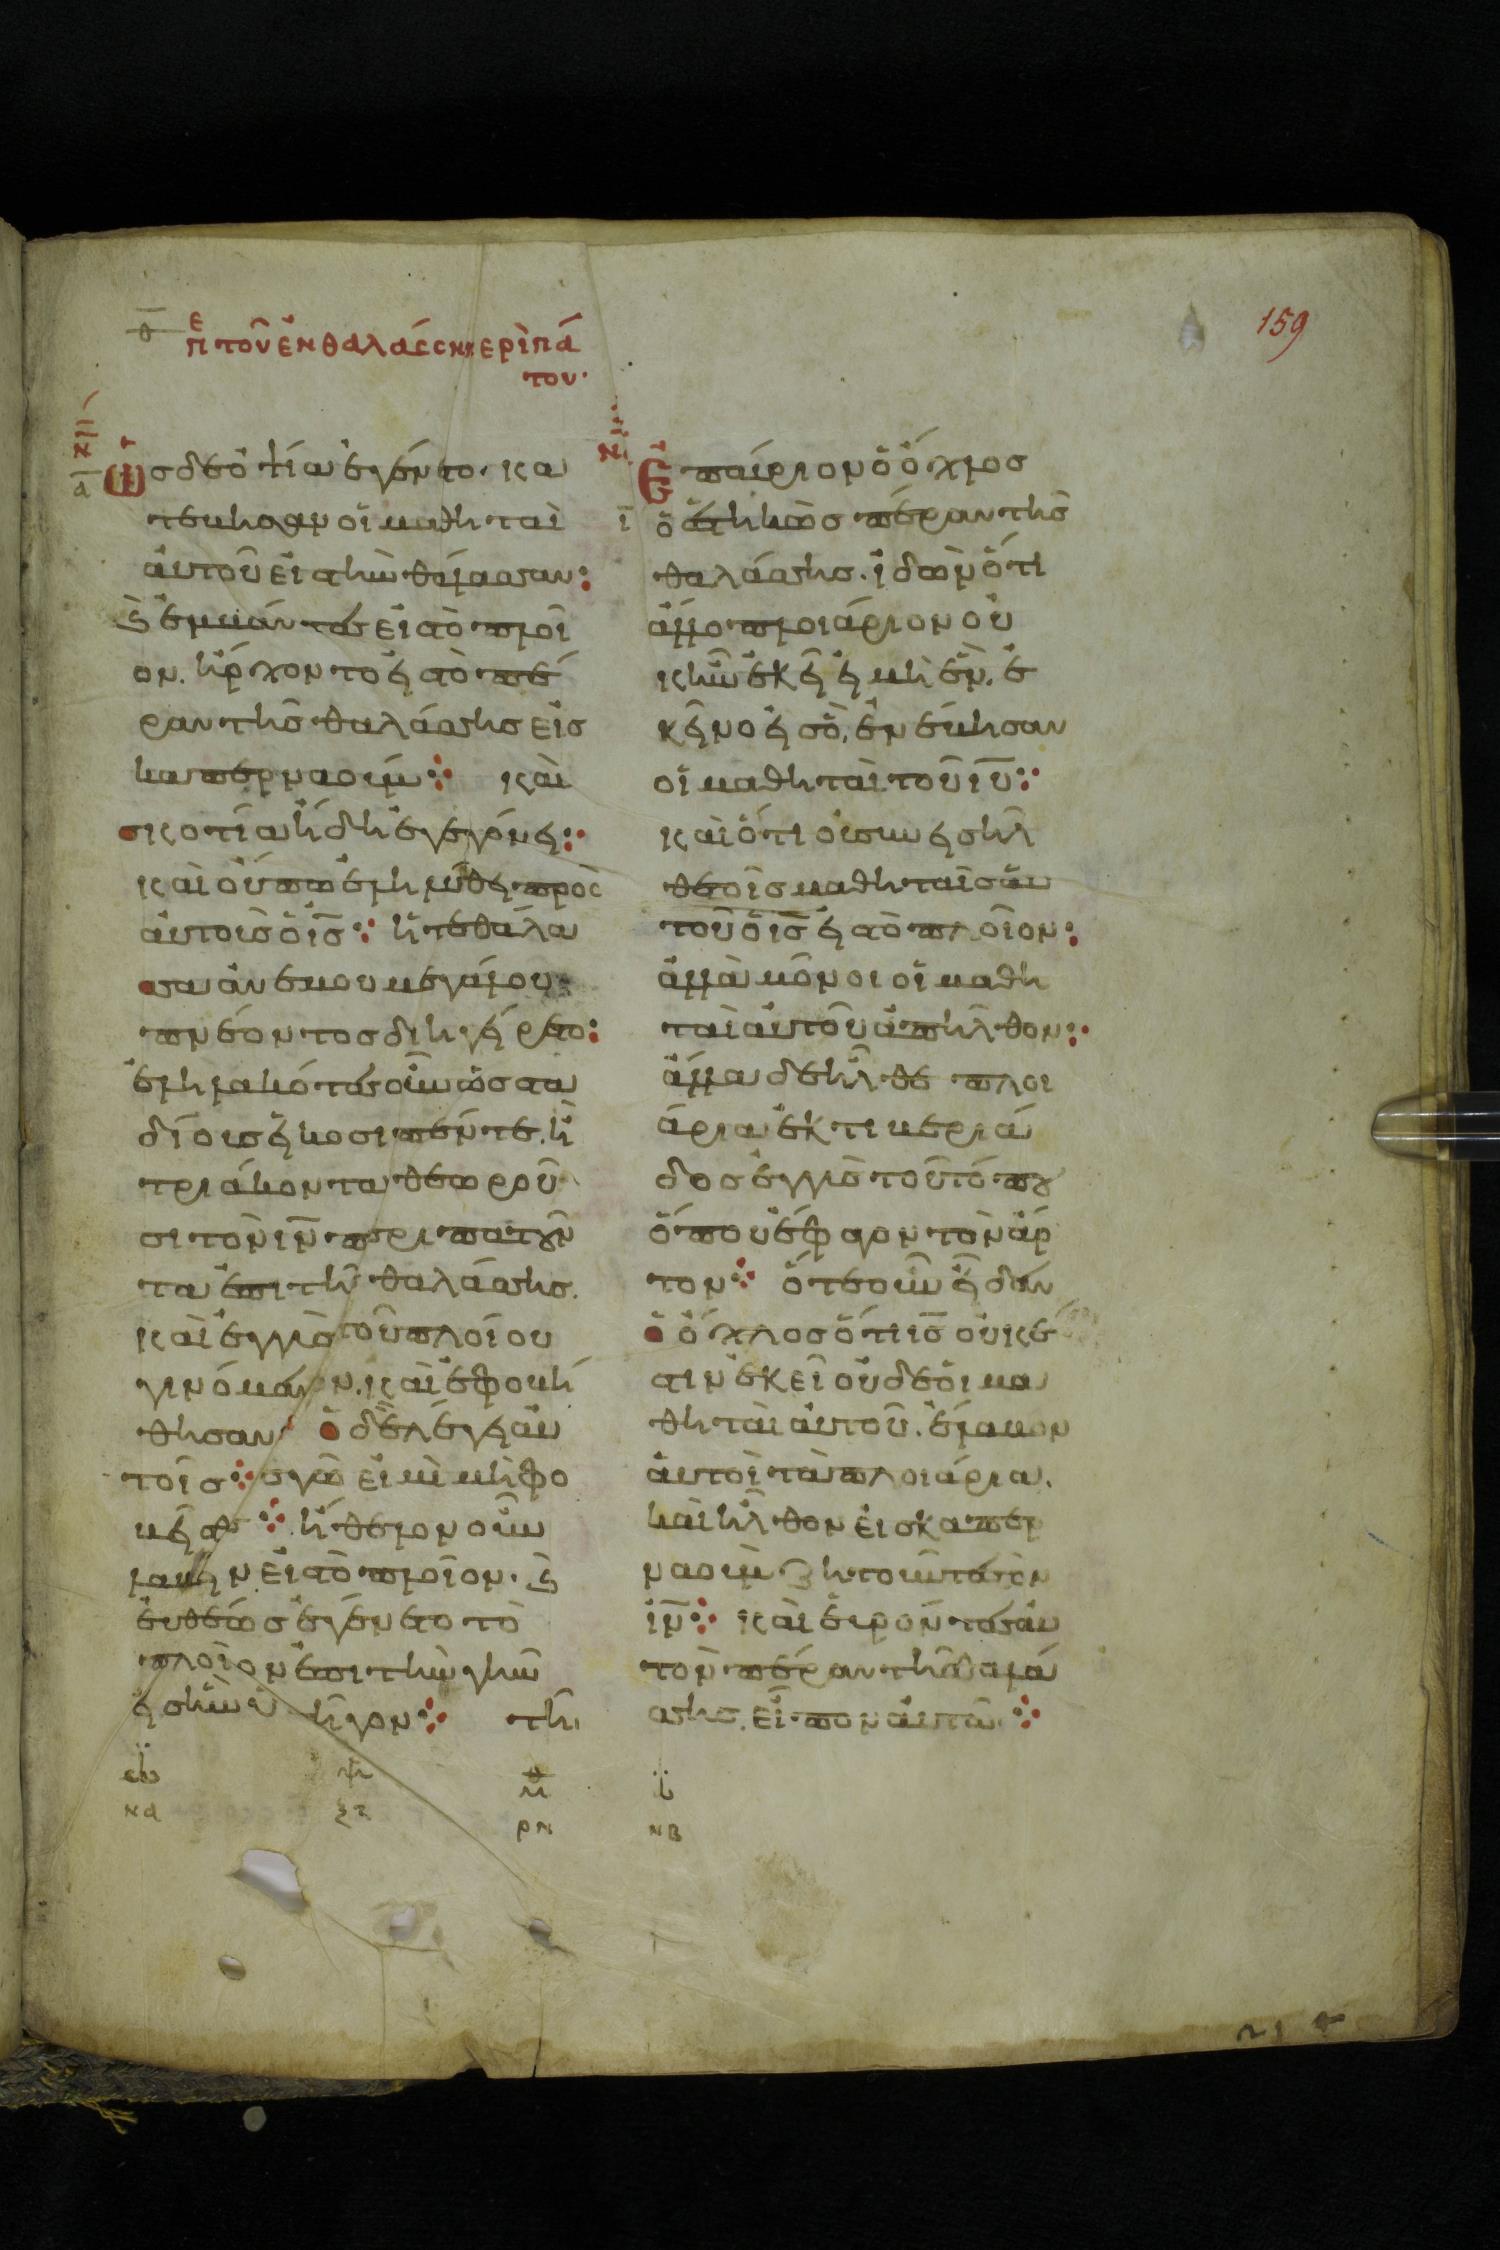 159
θ
ε
π τοῦ ἐν θαλάσση περιπά
του·
Ὡς δὲ ὀψία ἐγένετο· κα
τέβησαν οἱ μαθηταὶ
αὐτοῦ εἰς τὴν θάλασσαν:
Καὶ ἐμβάντες εἰς τὸ πλοῖ
ον. ἤρχοντο εἰς τὸ πέ
ραν τῆς θαλάσσης εἰς
καπερναούμ: καὶ
σκοτία ἤδη ἐγεγόνει:
καὶ οὔπω ἐληλύθει πρὸς
αὐτοὺς ὁ ις: ἥ τε θάλα
σσα ἀνέμου μεγάλου
πνέοντος διηγείρετο:
ἐληλακότες οὖν ὡς στα
δίους εἴκοσι πέντε. ἢ
τριάκοντα θεωροῦ
σι τὸν ιν περιπατοῦν
τα ἐπὶ τῆς θαλάσσης.
καὶ ἐγγὺς τοῦ πλοίου
γινόμενον. καὶ ἐφοβή
θησαν ὁ δὲ λέγει αὐ
τοῖς: ἐγώ εἰμὶ μὴ φο
βεῖσθε: ἤθελον οὖν
λαβεῖν εἰς τὸ πλοῖον. καὶ
εὐθέως ἐγένετο τὸ
πλοῖον ἐπὶ τὴν γῆν
εἰς ἣν ὑπῆγον: τῆ
Ἐπαύριον ὁ ὄχλος
ὁ ἑστηκὼς πέραν τῆς
θαλάσσης. ἰδὼν ὅτι
ἄλλο πλοιάριον οὐ
κ ἦν ἐκεῖ εἰ μὴ ἓν. ἐ
κεῖνο εἰς ὃ, ἐνέβησαν
οἱ μαθηταὶ τοῦ ιυ:
καὶ ὅτι οὐ συνεισῆλ
θε τοῖς μαθηταῖς αὐ
τοῦ ὁ ις εἰς τὸ πλοῖον:
ἀλλὰ μόνοι οἱ μαθη
ταὶ αὐτοῦ ἀπῆλθον:
ἄλλα δὲ ἦλθε πλοι
άρια ἐκ τιβεριά
δος ἐγγὺς τοῦ τόπου
ὅπου ἔφαγον τὸν ἄρ
τον: ὅτε οὖν εἶδεν
ὁ ὄχλος ὅτι ις οὐκ ἔ
στιν ἐκεῖ οὐδὲ οἱ μα
θηταὶ αὐτοῦ. ἔλαβον
αὐτοὶ τὰ πλοιάρια.
καὶ ἦλθον εἰς καπερ
ναοὺμ ζητοῦντες τὸν
ιν: καὶ εὑρόντες αὐ
τὸν πέραν τῆς θαλά
σσης. εἶπον αὐτῶ:
να
ρν
νβ